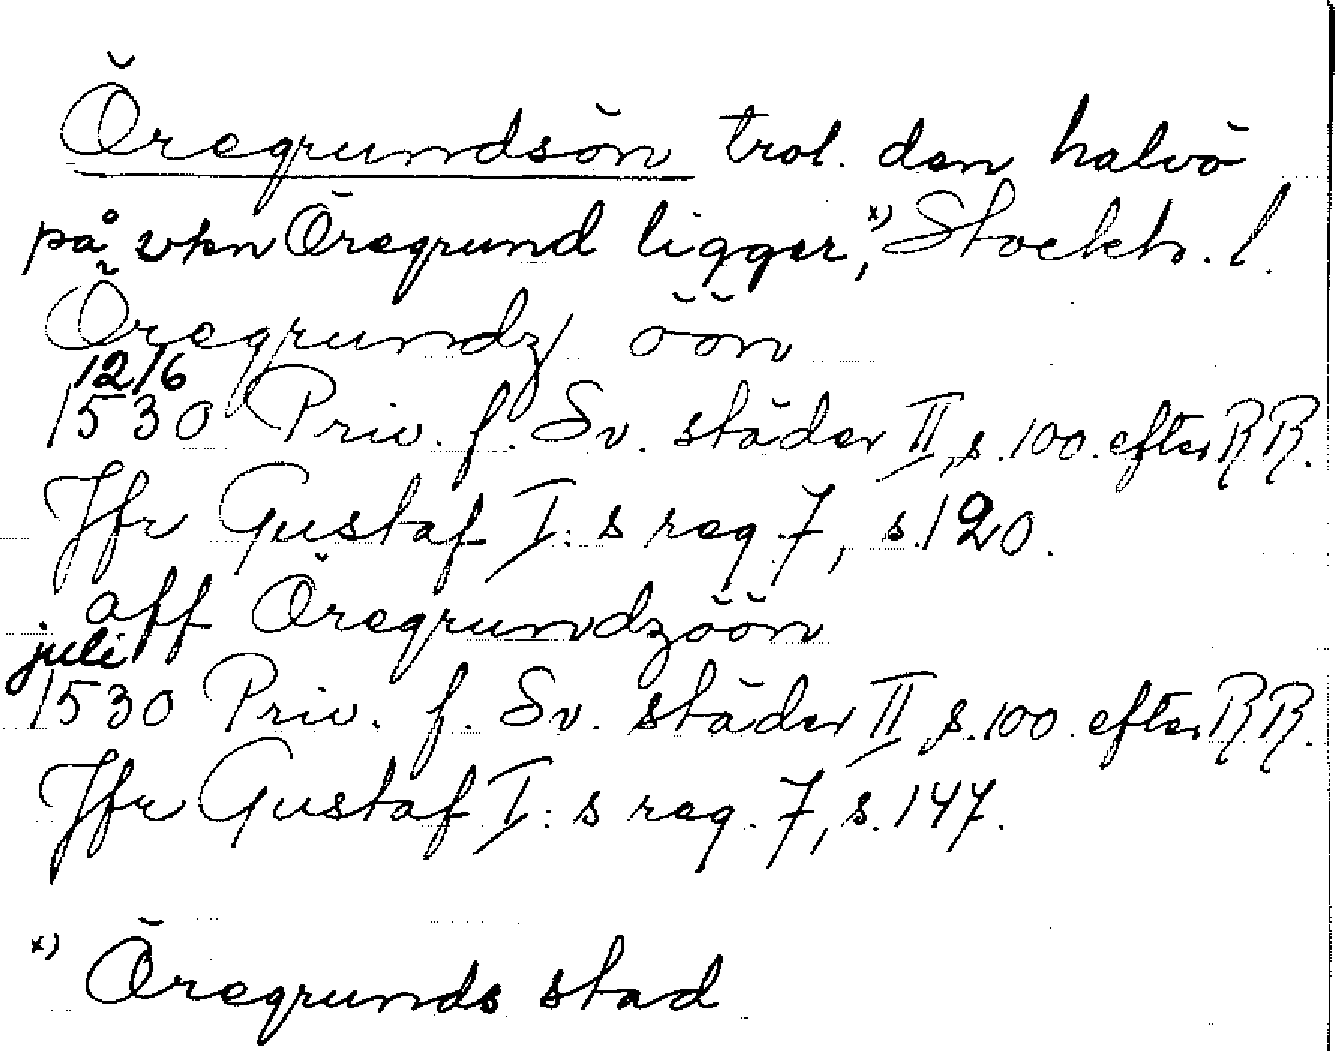 Öregrundsön trol. den halvö
på vkn Öregrund ligger,x) Stockh. l.
Öregrundz öön
12/6
1530 Priv. f. Sv. städer II, s. 100. efter RR.
Jfr Gustaf I: s reg. 7, s. 120.
aff Öregrundzöön
juli
1530 Priv. f. Sv. städer II s. 100. efter RR.
Jfr Gustaf I: s reg. 7, s. 147.
x) Öregrunds stad